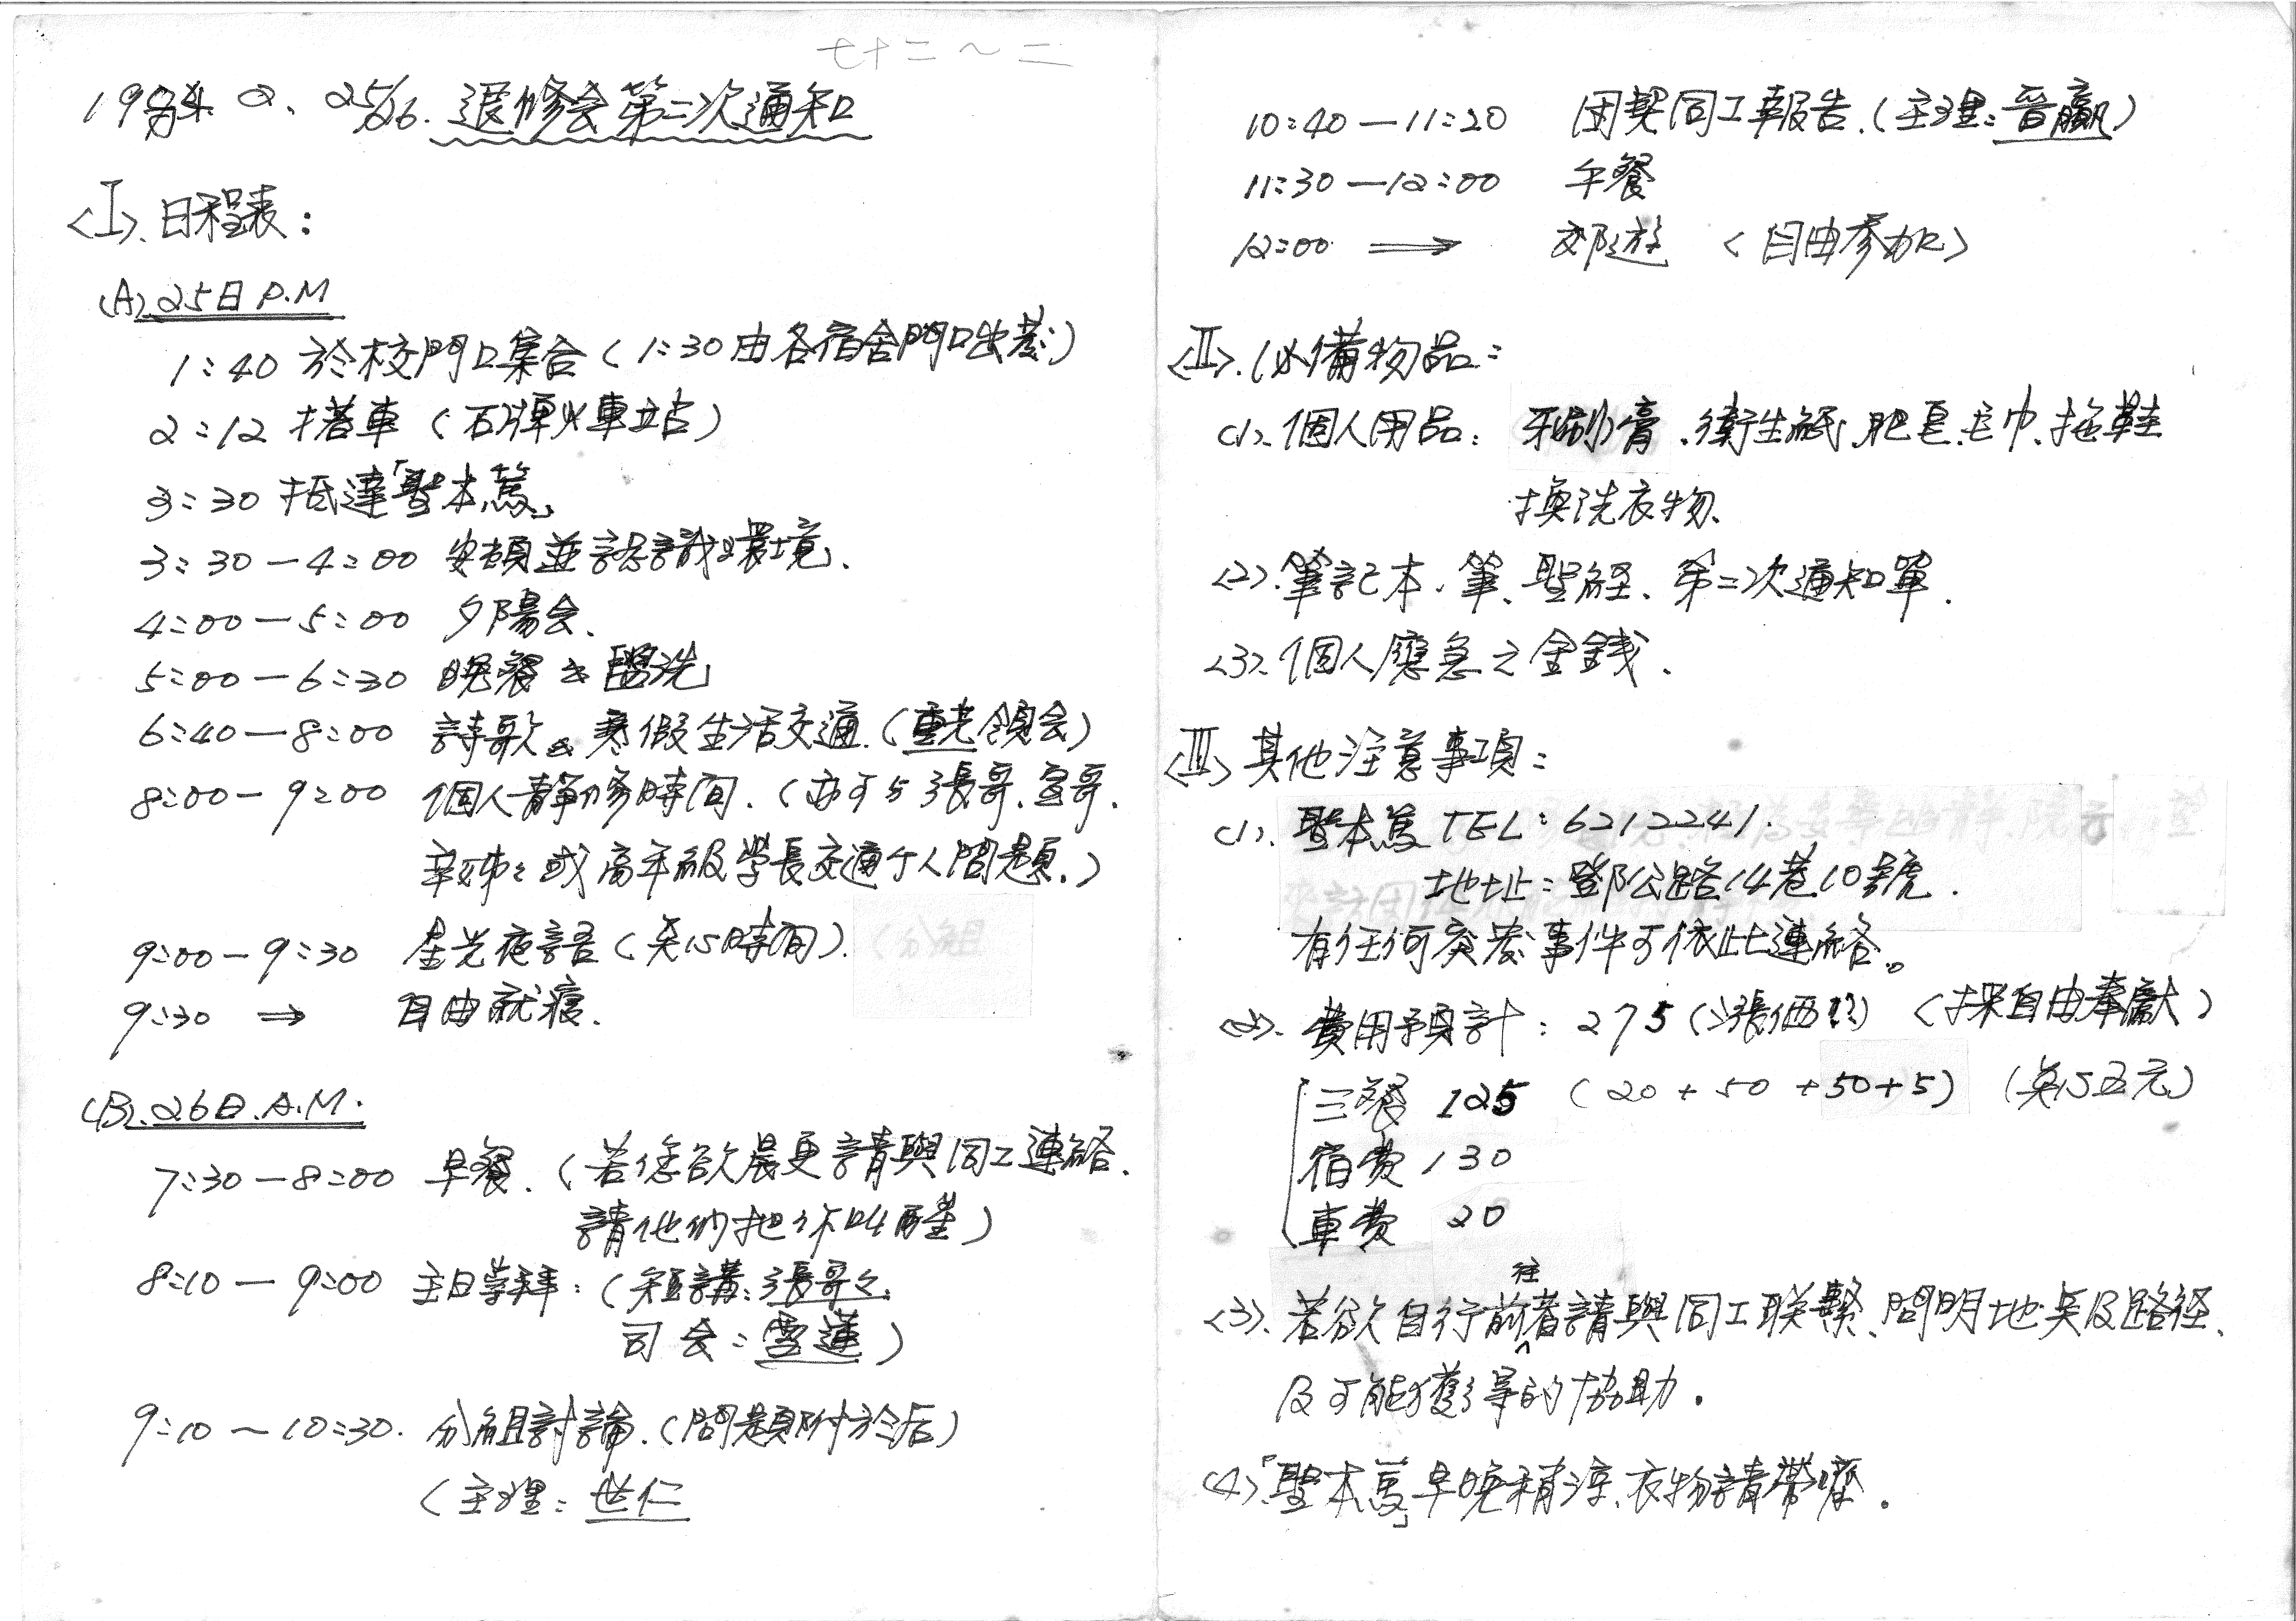 七十二～二
1984. 2. 25/26. 退修会第二次通知
<I>. 日程表：
(A). 25日 P.M
1：40 於校門口集合（1：30由各宿舍門口出發）
2：12 搭車（石牌火車站）
3：30 抵達「聖本篤」
3：30－4：00 安頓並認識環境、
4：00－5：00 夕陽会、
5：00－6：30 晚餐 & 盥洗
6：40－8：00 詩歌 & 寒假生活交通.（重光領会）
8：00－9：00 個人靜修時間.（亦可与張哥、宣哥、
辛姊：或高年級學長交通个人問題.）
9：00－9：30 星光夜語（共15時間）.
9：30 ⇒ 自由就寢.
(B). 26日. A.M.
7：30－8：00 早餐.（若您欲晨更請與同工連絡、
請他们把你叫醒）
8：10－9：00 主日崇拜：（短講：張哥々、
司会：雪蓮）
9：10～10：30. 分組討論.（問題附於后）
（主理：世仁
10：40－11：20 团契同工報告.（主理：晉贏）
11：30－12：00 午餐
12：00 ⟹ 郊遊 <自由參加>
<II>. 必備物品：
(1). 個人用品：牙刷膏、衛生紙、肥皂、毛巾、拖鞋
換洗衣物、
<2>. 筆記本、筆、聖経、第二次通知單.
<3>. 個人應急之金錢.
<III> 其他注意事項：
(1). 聖本篤 TEL：6212241.
地址：鄧公路14巷10號.
有任何突发事件可依此連絡。
(2). 費用預計：275（漲価!!）<採自由奉獻>
三餐 125（20＋50＋50＋5）（矣15五元）
宿費 130
車費 20
<3>. 若欲自行前往者請與同工联繫、問明地点及路径、
及可能獲得的協助.
(4).「聖本篤」早晚稍涼、衣物請帶夠.